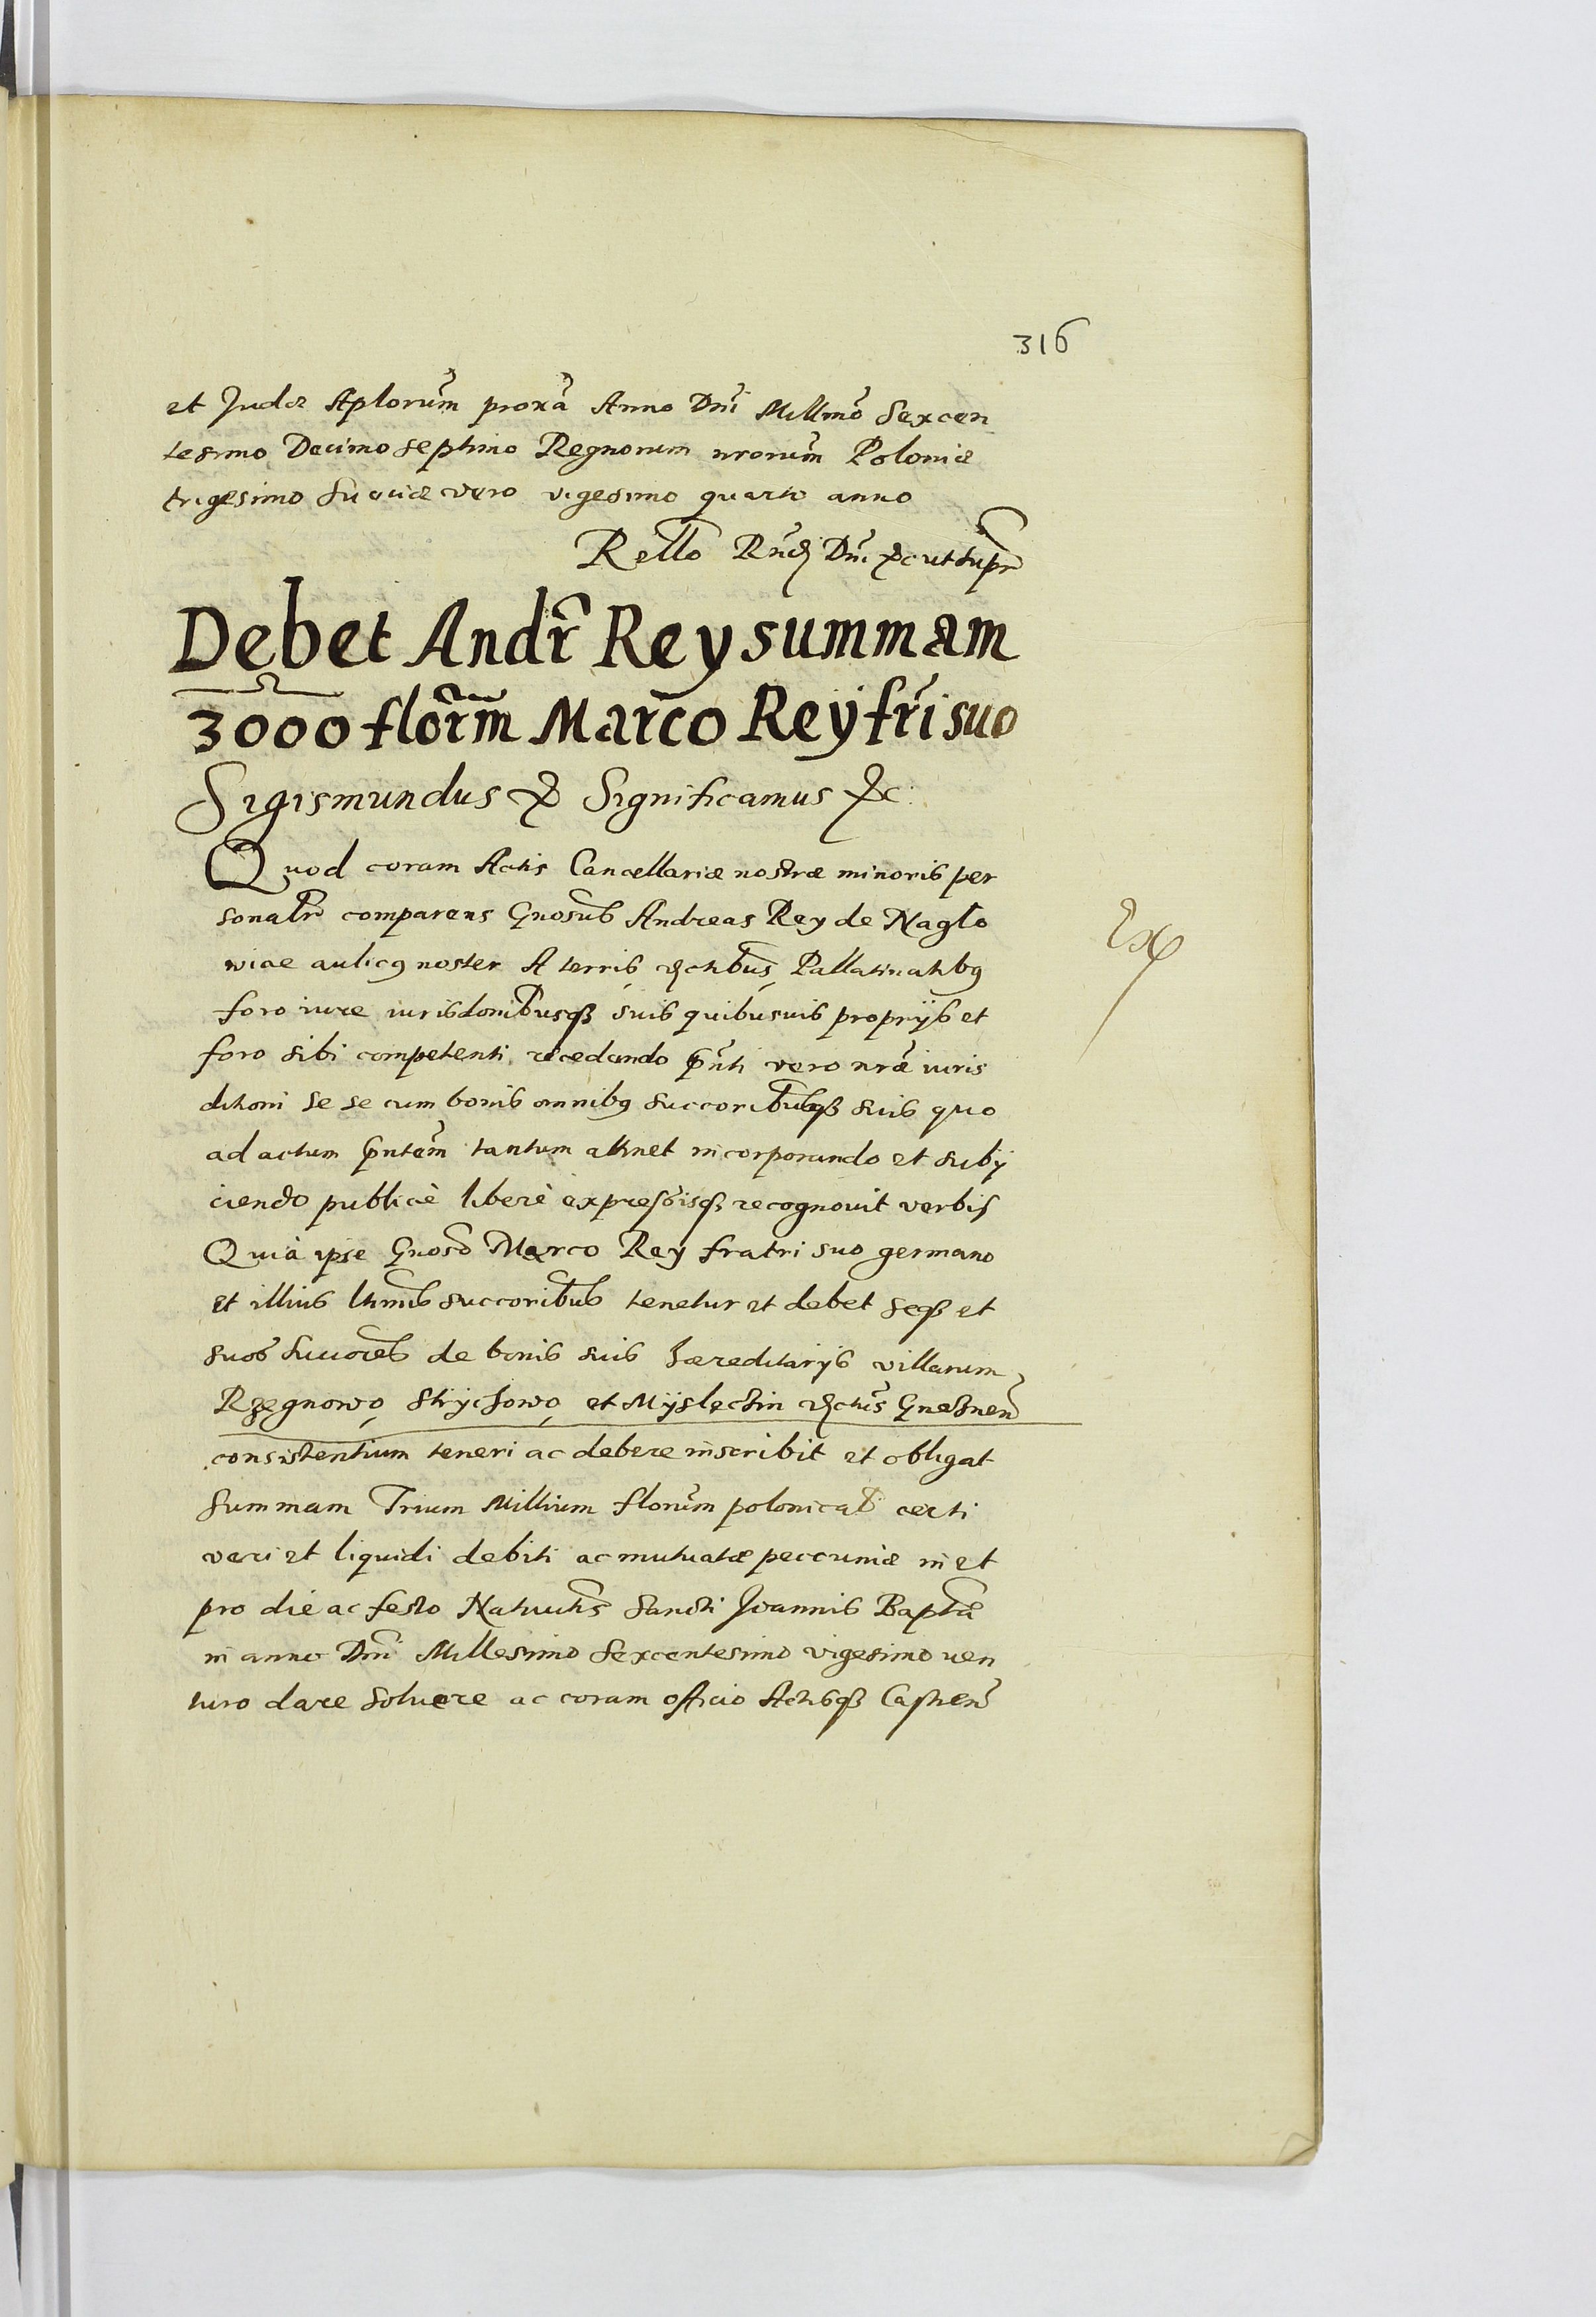 316
et Judæ Aplorum̃ proxã Anno Dni Millmo Sexcen
tesimo Decimo septimo Regnorum nrorum̃ Poloniæ
trigesimo Sueciæ vero vigesimo quarto anno
Rello Rndi Dni &c ut supr
Debet Andr̃ Rey summam
3000 florm̃ Marco Reÿ fr̃i suo
Sigismundus & Significamus &c:
Quod coram Actis Cancellariæ nostræ minoris per
sonalr comparens Gnosus Andreas Rey de Naglo
wice aulicq noster A terris dictibus Pallatinatibq
foro iure iurisdonibusqß suis quibusuis proprijs et
foro sibi competenti recedendo pñti vero nræ iuris
ditioni se se cum bonis omnibq succoribusqß suis quo
ad actum pñtem tantum attinet incorporando et subij
ciendo publicè liberè expressisqß recognouit verbis
Quià ipse Gnoso Marco Rey fratri suo germano
et illius ltimis succoribus tenetur et debet seqß et
suos succores de bonis suis hæreditarijs villarum
Rzegnowo, Strychowo, et Mÿslęchin dictus Gnesnen
consistentium teneri ac debere inscribit et obligat
summam Trium Millium florum polonical certi
veri et liquidi debiti ac mutuatæ peccuniæ in et
pro die ac festo Natiutis Sancti Joannis Baptæ
in anno Dni Millesimo Sexcentesimo vigesimo uen
turo dare soluere ac coram officio Actisqß Castren
Ex